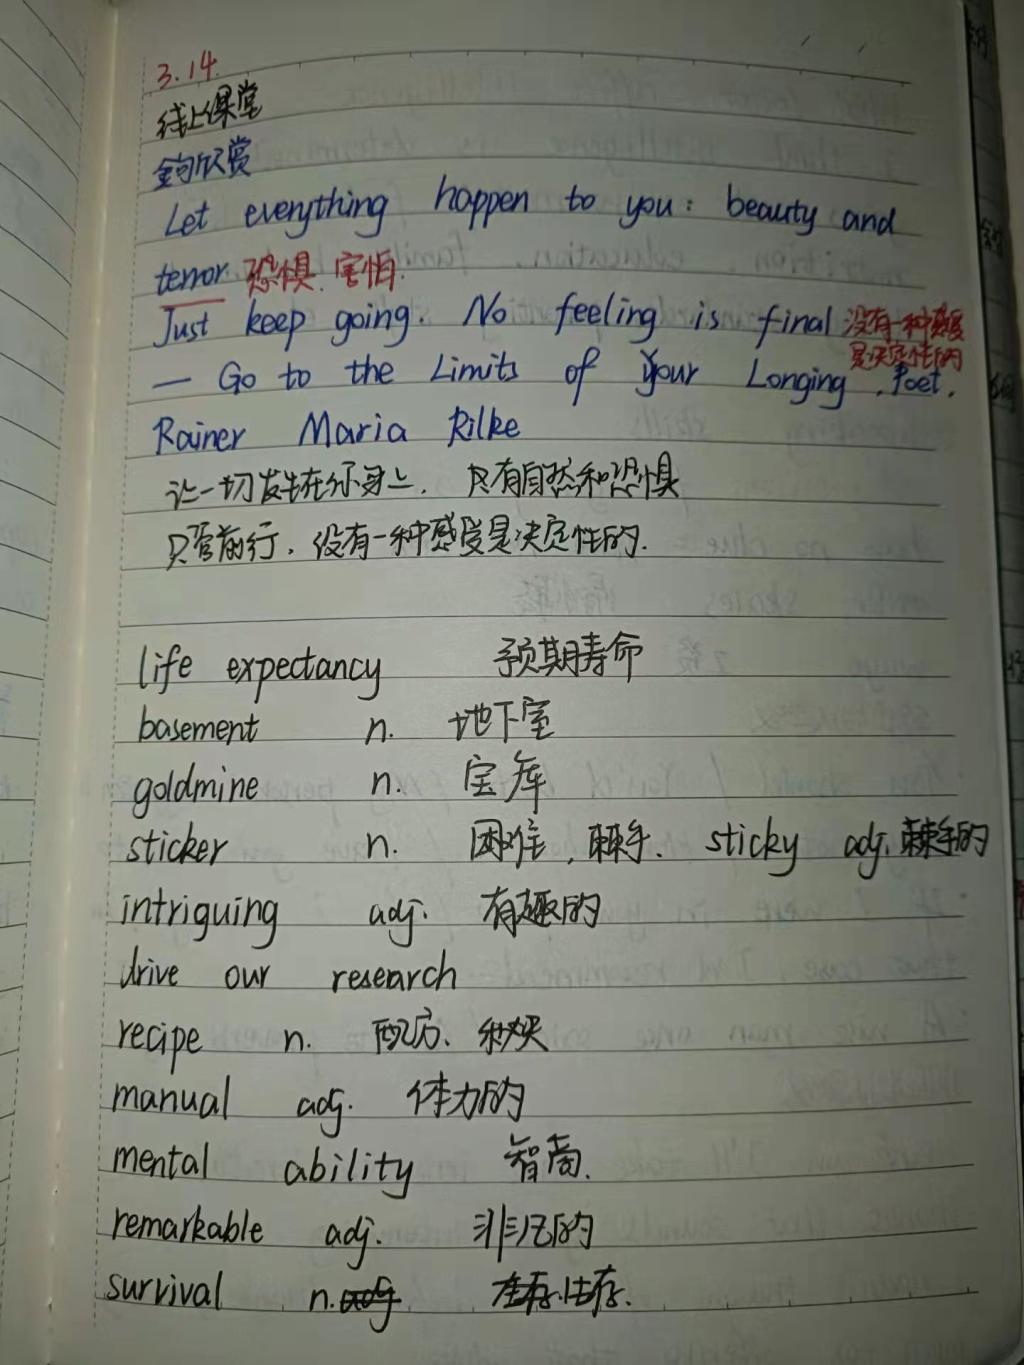 3.14.
线上课堂
金句欣赏
Let everything happen to you: beauty and
terror 恐惧、害怕.
Just keep going. No feeling is final 没有一种感受
是决定性的
— Go to the Limits of Your Longing, Poet.
Rainer Maria Rilke
让一切发生在你身上. 只有自然和恐惧
只管前行. 没有一种感受是决定性的.
life expectancy 预期寿命
basement n. 地下室
goldmine n. 宝库
sticker n. 困难, 棘手. sticky adj. 棘手的
intriguing adj. 有趣的
drive our research
recipe n. 配方、秘诀
manual adj. 体力的
mental ability 智商.
remarkable adj. 非凡的
survival n.